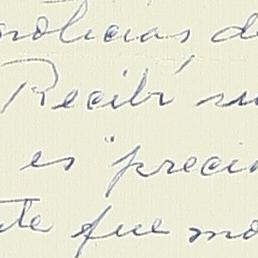 noticias d
Recibí su
es precio
te que mo